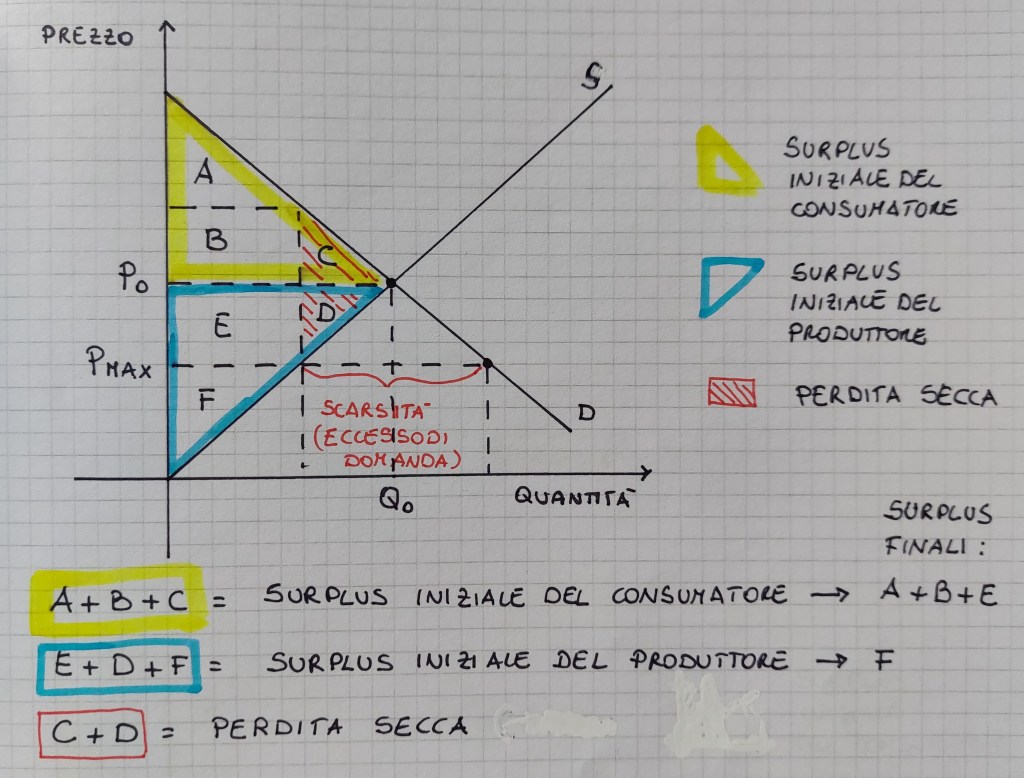 PREZZO
S
A
SURPLUS
INIZIALE DEL
CONSUMATORE
B
C
P0
SURPLUS
INIZIALE DEL
PRODUTTORE
E
D
PMAX
F
PERDITA SECCA
SCARSITÀ
(ECCESSO DI
DOMANDA)
D
Q0
QUANTITÀ
SURPLUS
FINALI:
A+B+C = SURPLUS INIZIALE DEL CONSUMATORE → A+B+E
E+D+F = SURPLUS INIZIALE DEL PRODUTTORE → F
C+D = PERDITA SECCA